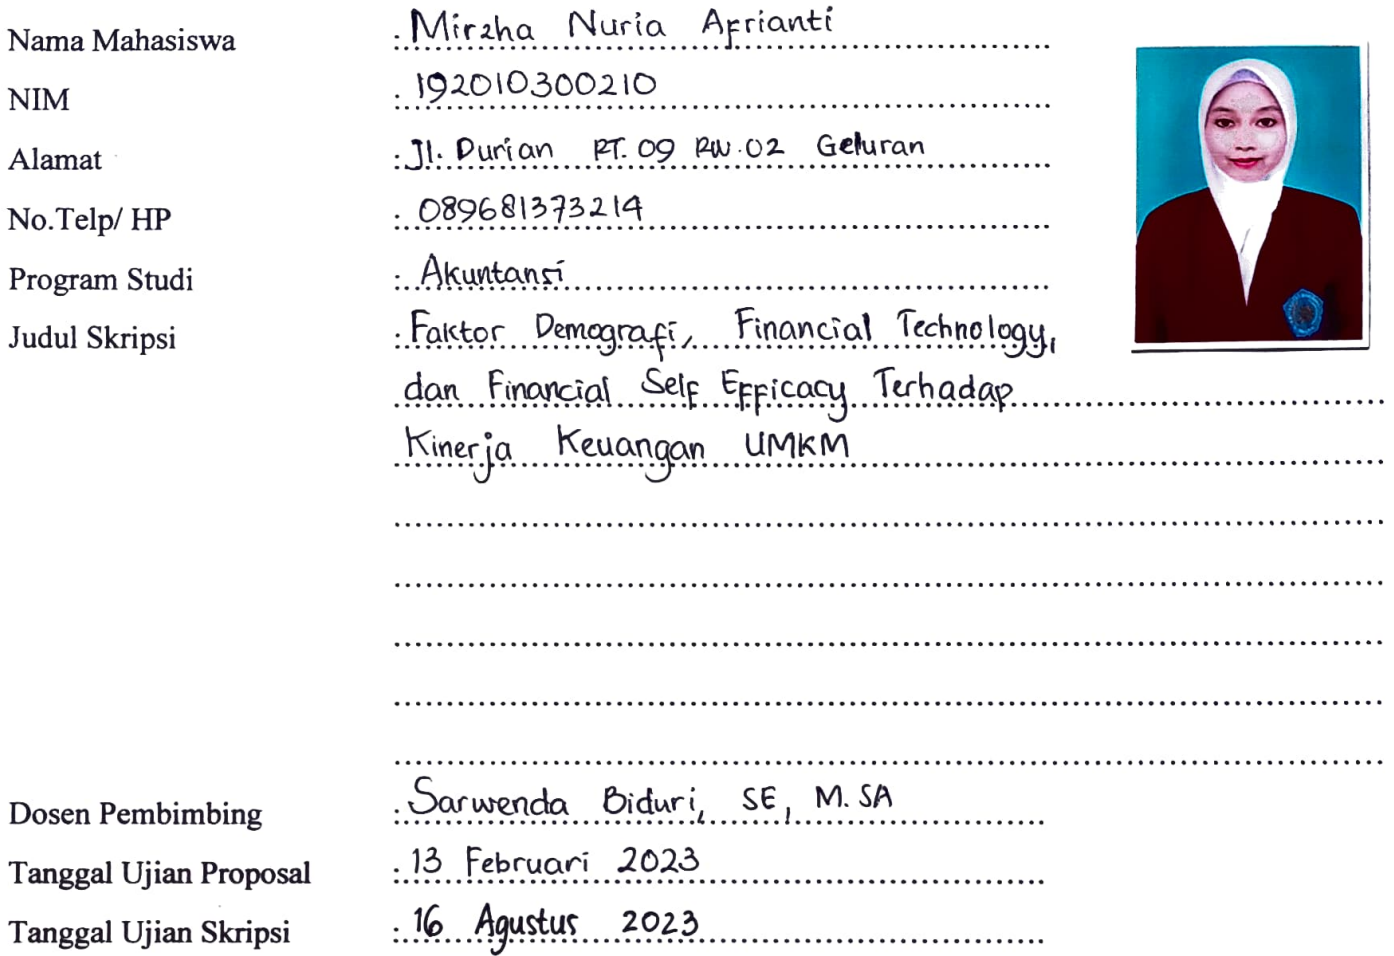 Nama Mahasiswa : Mirzha Nuria Afrianti
NIM : 192010300210
Alamat : Jl. Durian RT. 09 RW. 02 Geluran
No.Telp/ HP : 089681373214
Program Studi : Akuntansi
Judul Skripsi : Faktor Demografi, Financial Technology,
dan Financial Self Efficacy Terhadap
Kinerja Keuangan UMKM
Dosen Pembimbing : Sarwenda Biduri, SE, M.SA
Tanggal Ujian Proposal : 13 Februari 2023
Tanggal Ujian Skripsi : 16 Agustus 2023